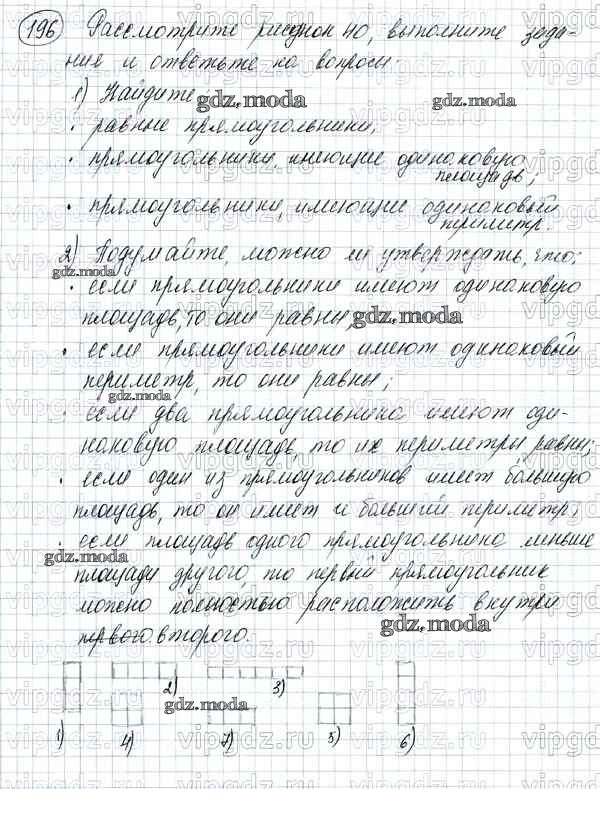 196 Рассмотрите рисунок 40, выполните зада-
ния и ответьте на вопросы.
1) Найдите
gdz.moda
gdz.moda
• равные прямоугольники;
• прямоугольники, имеющие одинаковую
площадь;
• прямоугольники, имеющие одинаковый
периметр.
2) Подумайте, можно ли утверждать, что:
gdz.moda
• если прямоугольники имеют одинаковую
площадь, то они равны;
gdz.moda
• если прямоугольники имеют одинаковый
периметр, то они равны;
gdz.moda
• если два прямоугольника имеют оди-
наковую площадь, то их периметры равны;
• если один из прямоугольников имеет большую
площадь, то он имеет и больший периметр;
• если площадь одного прямоугольника меньше
gdz.moda
площади другого, то первый прямоугольник
можно полностью расположить внутри
gdz.moda
первого второго.
2) 3)
gdz.moda
1) 4) 7) 5) 6)
vipgdz.ru